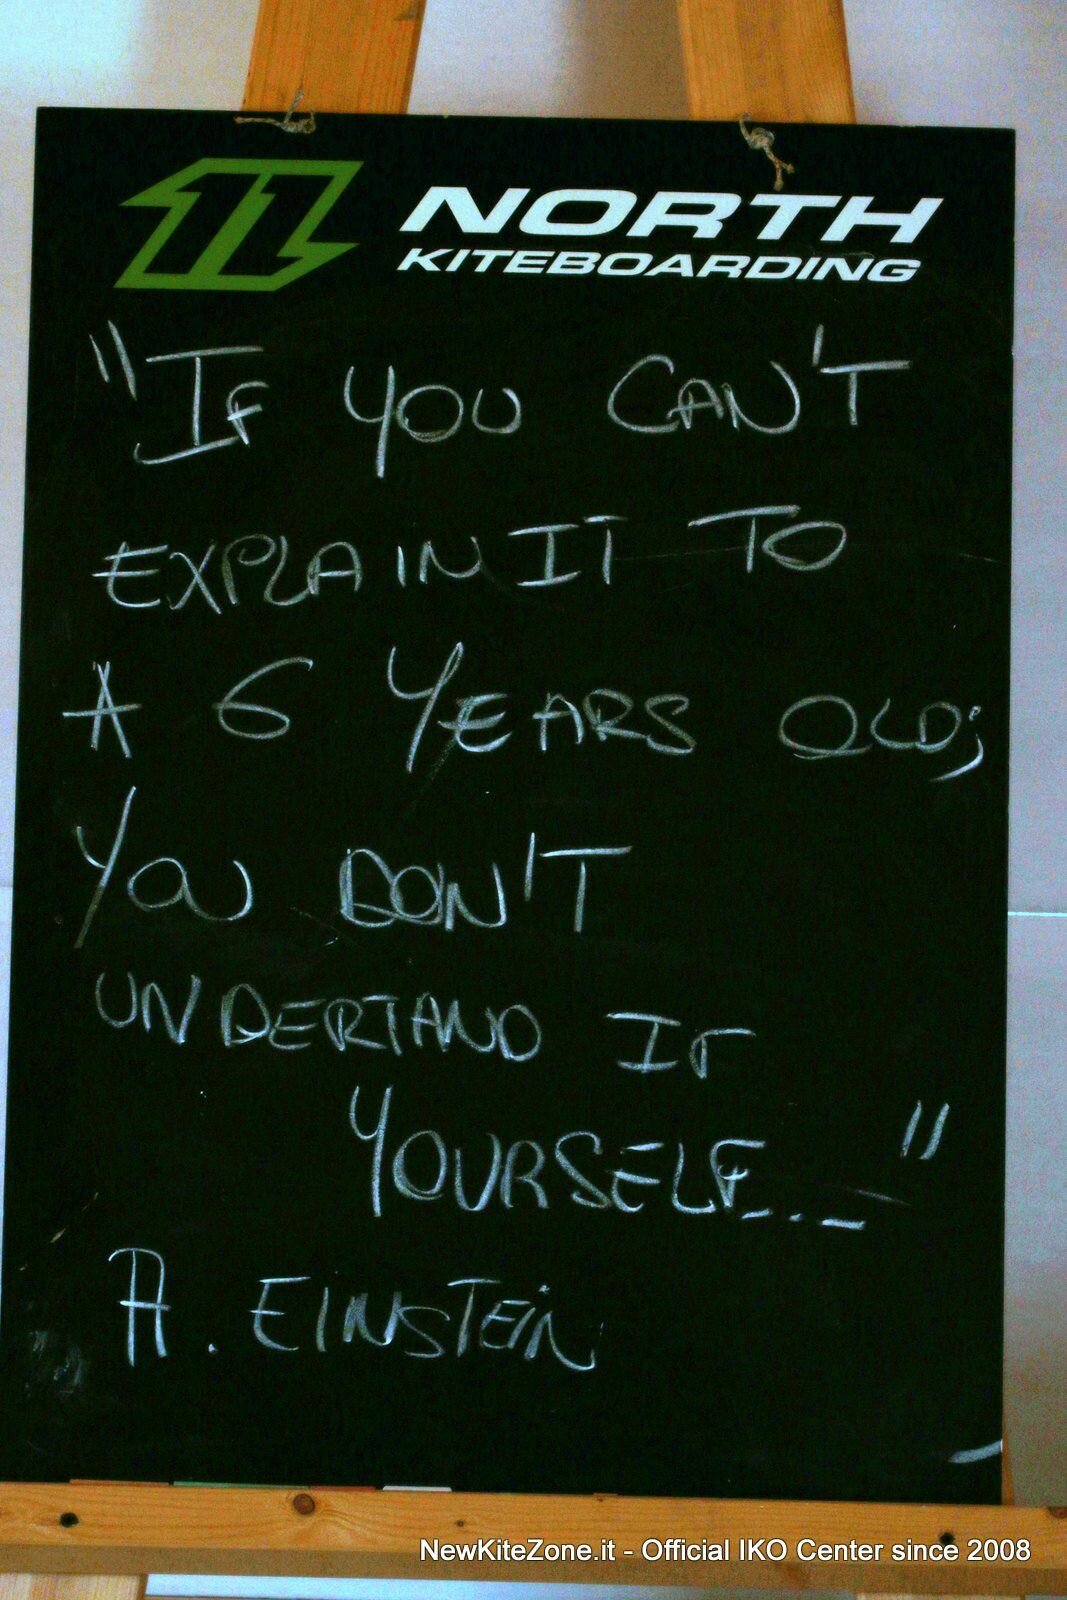 NORTH
KITEBOARDING
"IF YOU CAN'T
EXPLAIN IT TO
A 6 YEARS OLD;
YOU DON'T
UNDERTAND IT
YOURSELF... "
A. EINSTEIN
NewKiteZone.it - Official IKO Center since 2008